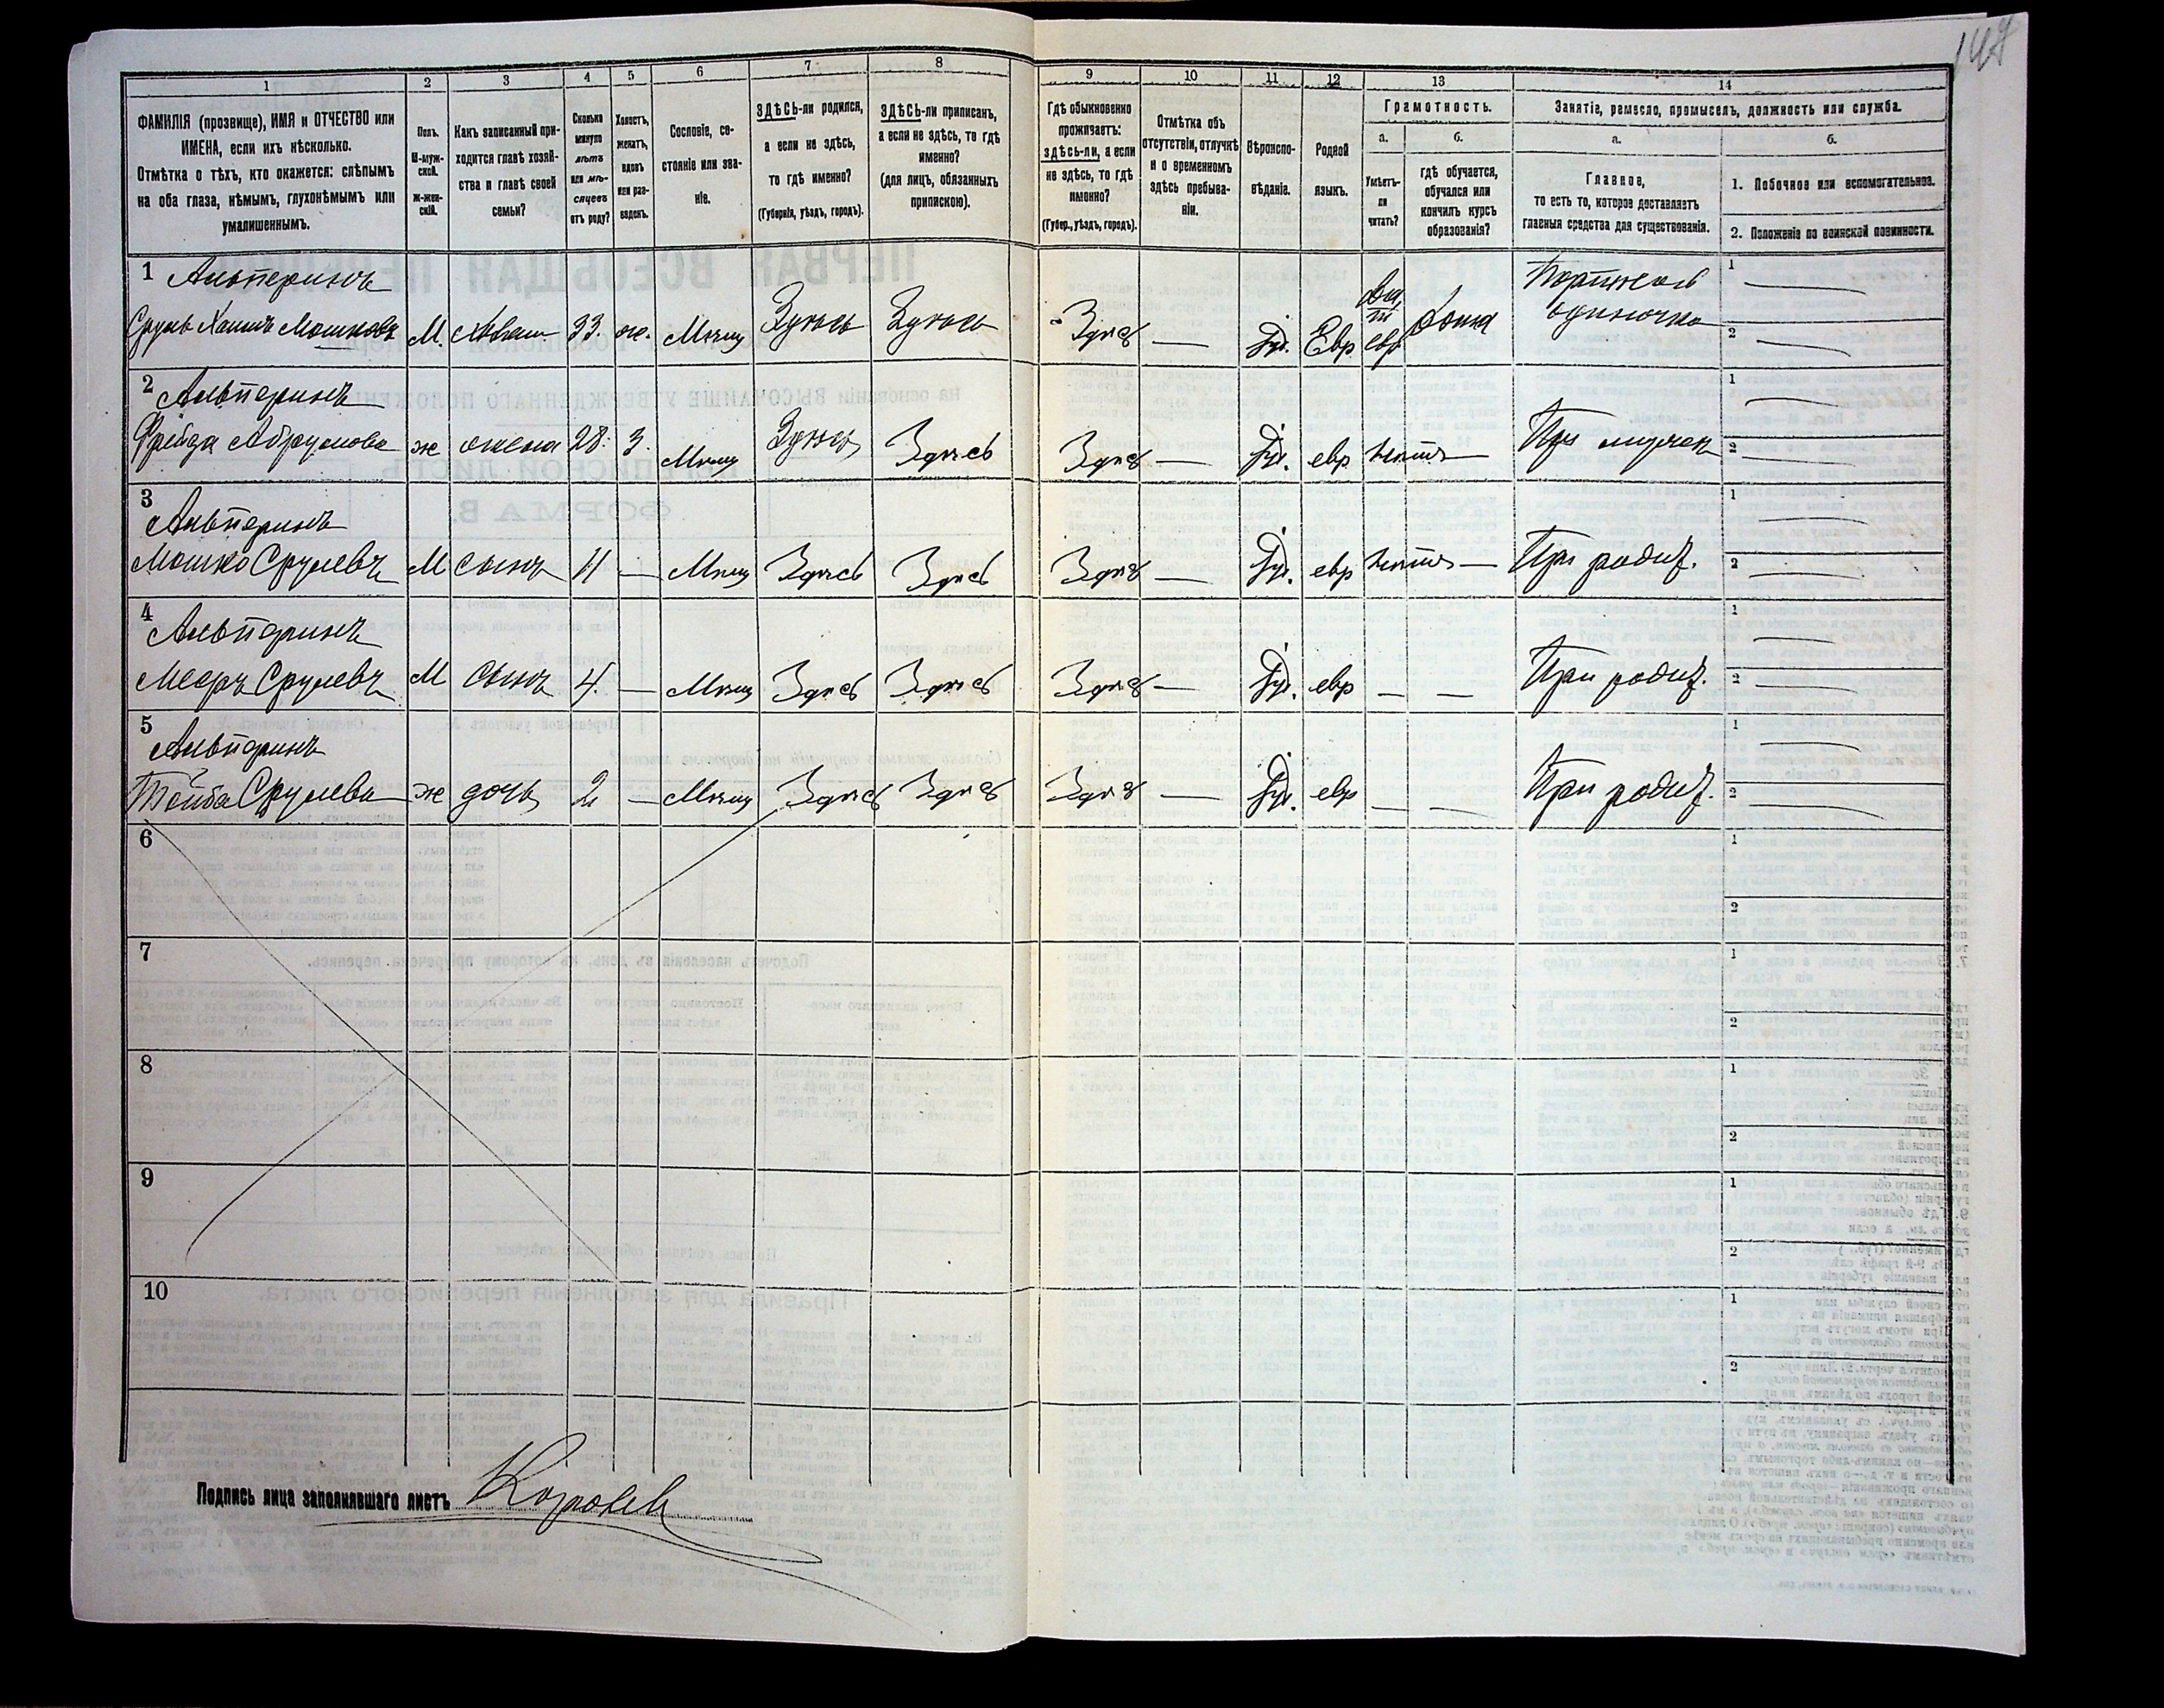 147
1 2 3 4 5 6 7 8 9 10 11 12 13 14
ФАМИЛІЯ (прозвище), ИМЯ и ОТЧЕСТВО или
ИМЕНА, если ихъ нѣсколько.
Отмѣтка о тѣхъ, кто окажется: слѣпымъ
на оба глаза, нѣмымъ, глухонѣмымъ или
умалишеннымъ.
Полъ.
М-муж-
ской.
Ж-жен-
скій.
Какъ записанный при-
ходится главѣ хозяй-
ства и главѣ своей
семьи?
Сколько
минуло
лѣтъ
или мѣ-
сяцевъ
отъ роду?
Холостъ,
женатъ,
вдовъ
или раз-
веденъ.
Сословіе, со-
стояніе или зва-
ніе.
ЗДѢСЬ-ли родился,
а если не здѣсь,
то гдѣ именно?
(Губернія, уѣздъ, городъ).
ЗДѢСЬ-ли приписанъ,
а если не здѣсь, то гдѣ
именно?
(для лицъ, обязанныхъ
припискою).
Гдѣ обыкновенно
проживаетъ:
здѣсь-ли, а если
не здѣсь, то гдѣ
именно?
(Губер., уѣздъ, городъ).
Отмѣтка объ
отсутствіи, отлучкѣ
и о временномъ
здѣсь пребыва-
ніи.
Вѣроиспо-
вѣданіе.
Родной
языкъ.
Грамотность.
а.
Умѣетъ-
ли
читать?
б.
гдѣ обучается,
обучался или
кончилъ курсъ
образованія?
Занятіе, ремесло, промыселъ, должность или служба.
а.
Главное,
то есть то, которое доставляетъ
главныя средства для существованія.
б.
1. Побочное или вспомогательное.
2. Положеніе по воинской повинности.
1 Альперинъ
Сруль Хаимъ Мошковъ М. 33. же. Мѣщ Здѣсь Здѣсь Здѣсь — Іуд. Евр евр дома
Портной
одиночка
1 —
2 —
2 Альперинъ
Фрейда Абрумова ж жена 28. З. Мѣщ Здѣсь Здѣсь Здѣсь — Іуд. евр нѣтъ — При мужѣ
1 —
2 —
3 Альперинъ
Мошко Срулевъ М сынъ 11 — Мѣщ Здѣсь Здѣсь Здѣсь — Іуд. евр нѣтъ — При родит.
1 —
2 —
4 Альперинъ
Мееръ Срулевъ М сынъ 4. — Мѣщ Здѣсь Здѣсь Здѣсь — Іуд. евр — — При родит.
1 —
2 —
5 Альперинъ
Тойба Срулева ж дочь 2 — Мѣщ Здѣсь Здѣсь Здѣсь — Іуд. евр — — При родит.
1 —
2 —
6
1
2
7
1
2
8
1
2
9
1
2
10
1
2
Подпись лица заполнявшаго листъ